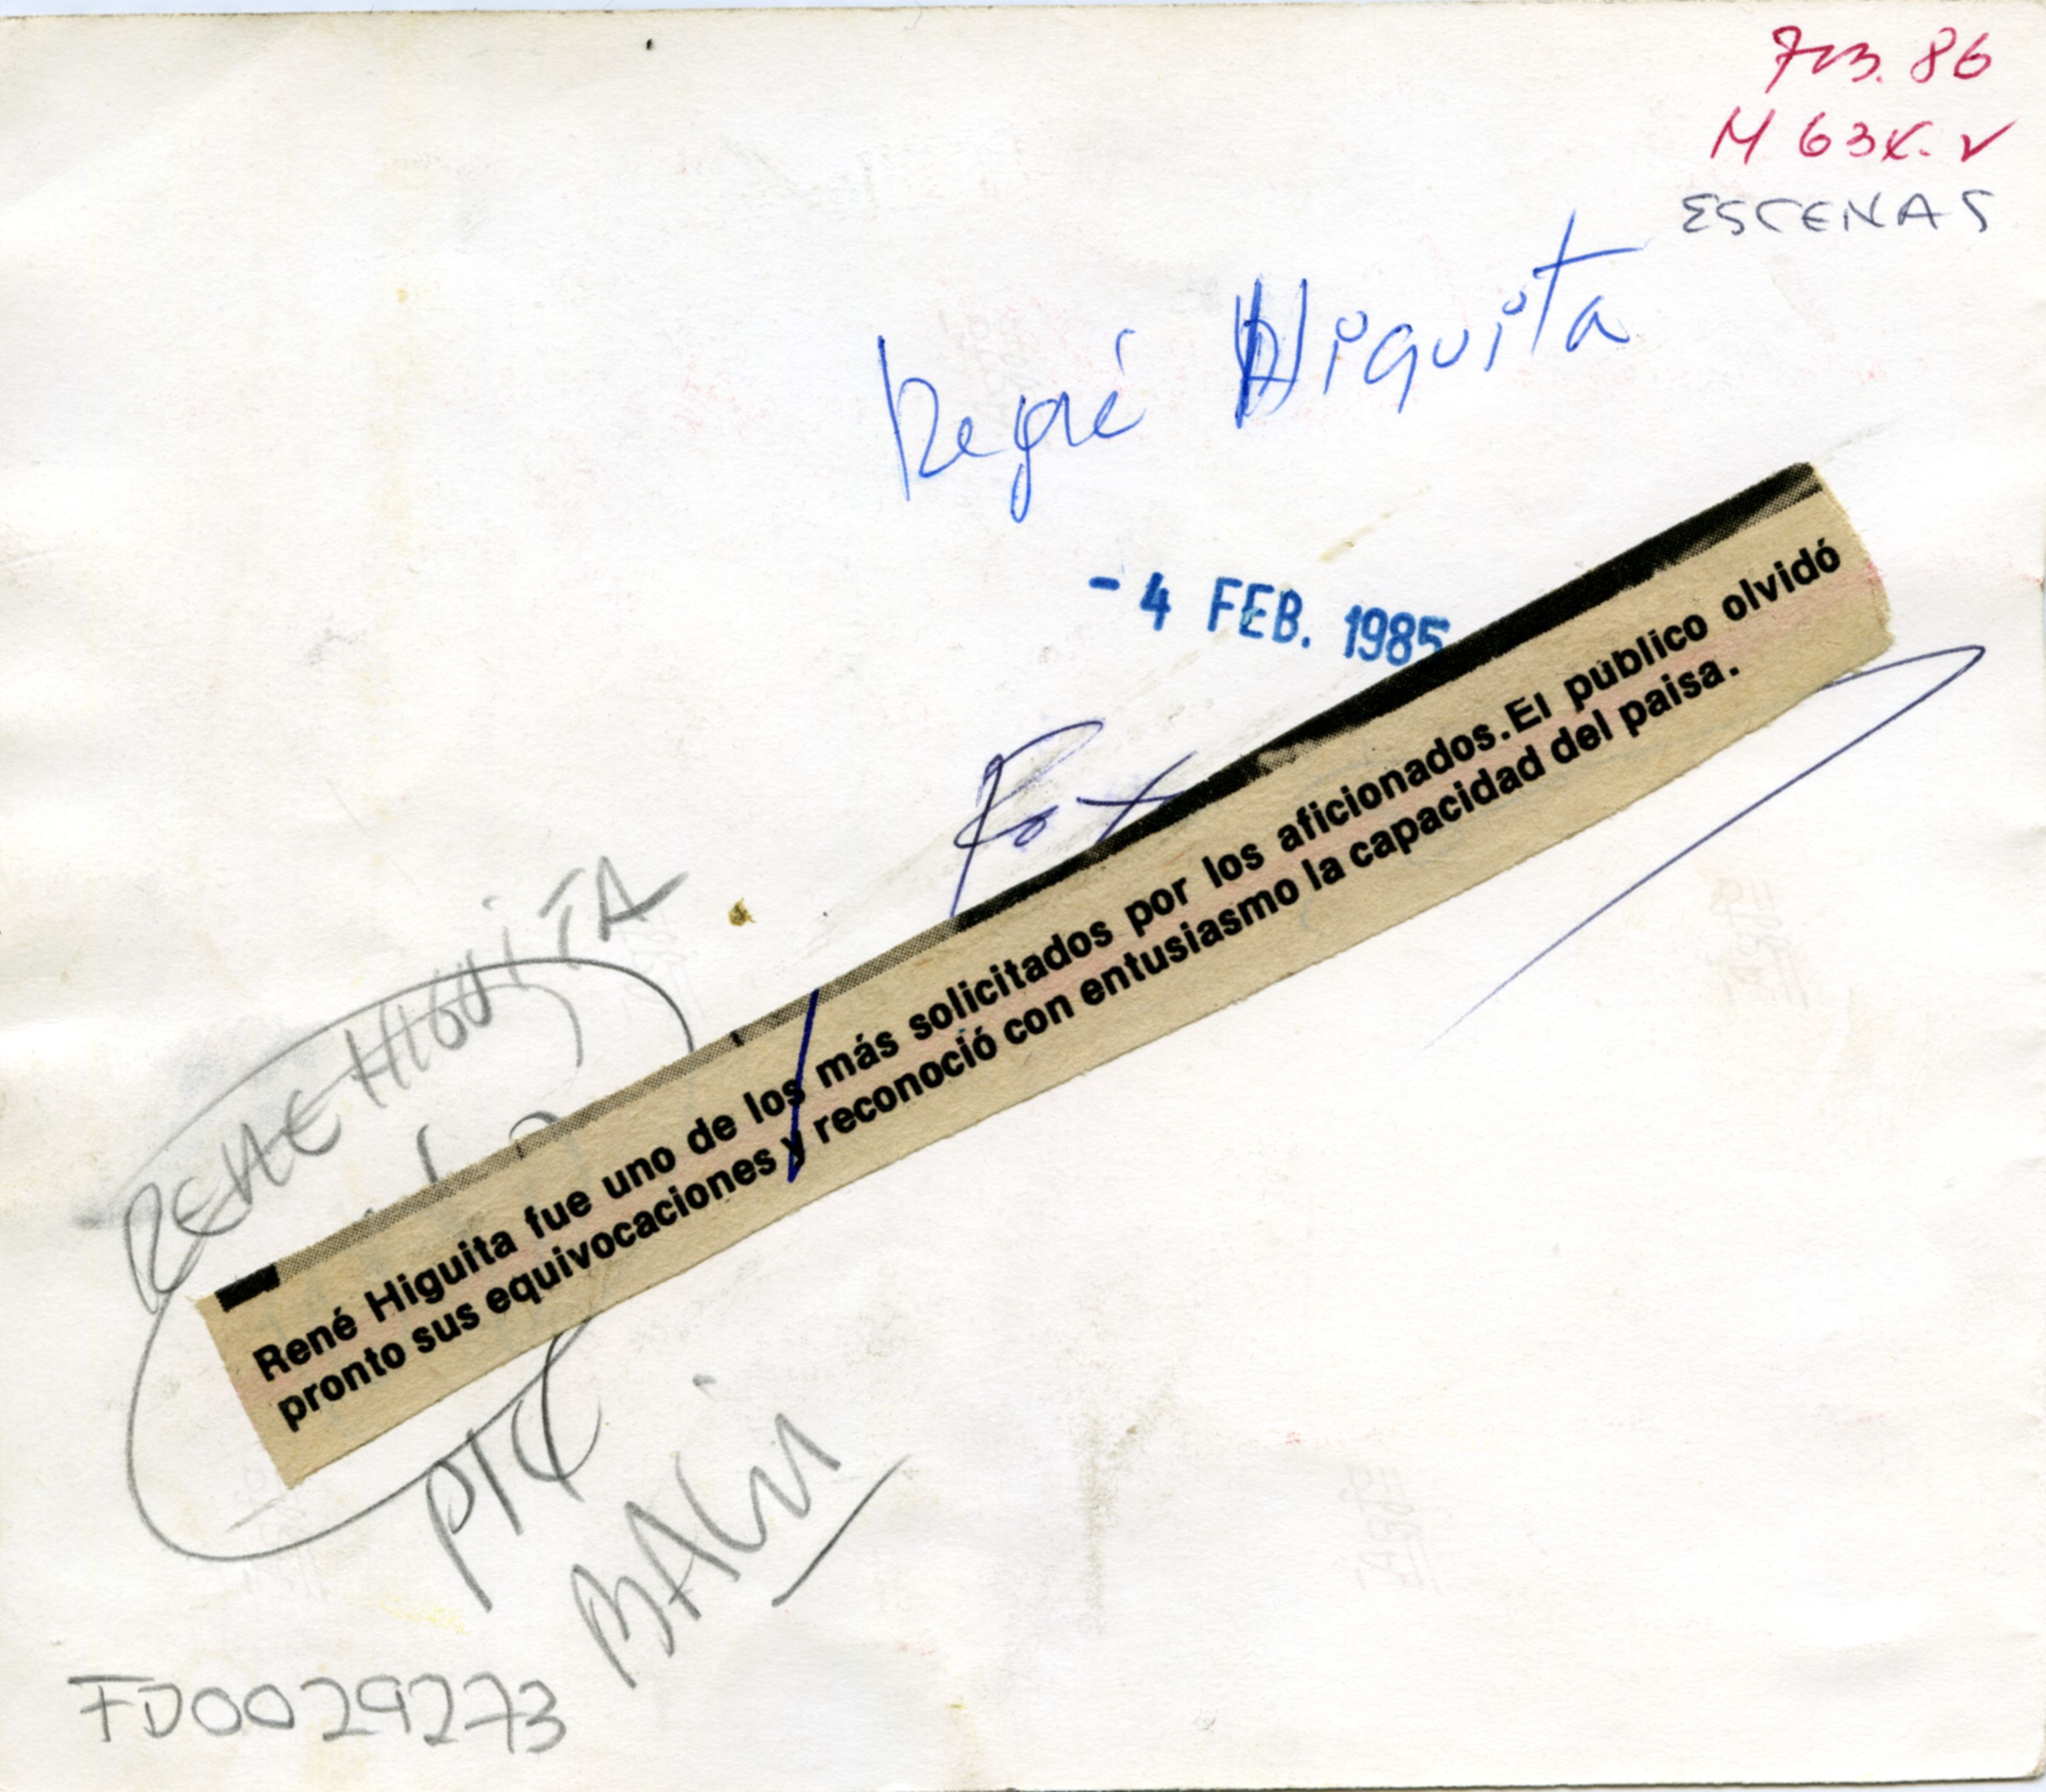 86
M 63x. v
ESCENAS
René Higuita
- 4 FEB. 1985
René Higuita fue uno de los más solicitados por los aficionados. El público olvidó
pronto sus equivocaciones y reconoció con entusiasmo la capacidad del paisa.
RENE HIGUITA
FD0029273